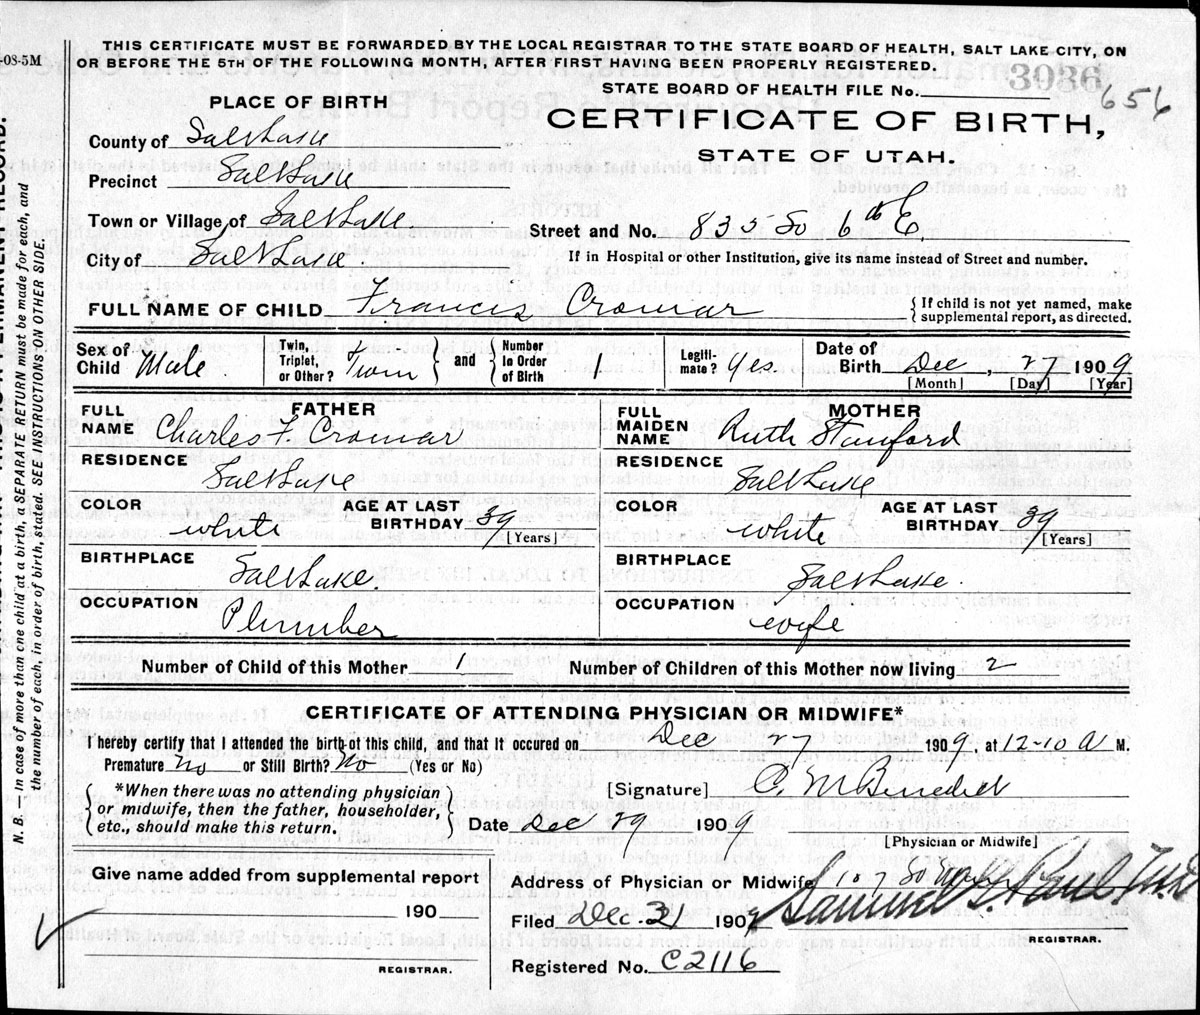 -08-5M
THIS CERTIFICATE MUST BE FORWARDED BY THE LOCAL REGISTRAR TO THE STATE BOARD OF HEALTH, SALT LAKE CITY, ON
OR BEFORE THE 5TH OF THE FOLLOWING MONTH, AFTER FIRST HAVING BEEN PROPERLY REGISTERED.
STATE BOARD OF HEALTH FILE No. 3086
656
PLACE OF BIRTH
CERTIFICATE OF BIRTH,
STATE OF UTAH.
County of Salt Lake
Precinct Salt Lake
Town or Village of Salt Lake
Street and No. 835 So 6th E
City of Salt Lake
If in Hospital or other Institution, give its name instead of Street and number.
FULL NAME OF CHILD Francis Cromar
{ If child is not yet named, make supplemental report, as directed.
Sex of Child Male
Twin, Triplet, or Other? Twin } and { Number in Order of Birth 1
Legitimate? Yes.
Date of Birth Dec, 27 1909
[Month] [Day] [Year]
FATHER
FULL NAME Charles F. Cromar
RESIDENCE Salt Lake
COLOR white
AGE AT LAST BIRTHDAY 39 [Years]
BIRTHPLACE Salt Lake.
OCCUPATION Plumber
MOTHER
FULL MAIDEN NAME Ruth Stanford
RESIDENCE Salt Lake
COLOR white
AGE AT LAST BIRTHDAY 39 [Years]
BIRTHPLACE Salt Lake.
OCCUPATION wife
Number of Child of this Mother 1
Number of Children of this Mother now living 2
CERTIFICATE OF ATTENDING PHYSICIAN OR MIDWIFE*
I hereby certify that I attended the birth of this child, and that it occured on Dec 27 1909, at 12-10 a M.
Premature No or Still Birth? No (Yes or No)
{ *When there was no attending physician
or midwife, then the father, householder,
etc., should make this return. }
[Signature] C M Benedict
Date Dec 29 1909
[Physician or Midwife]
Give name added from supplemental report
190
REGISTRAR.
Address of Physician or Midwife 107 So
Filed Dec 31 1909
Samuel G. Paul, M.D.
REGISTRAR.
Registered No. C2116
N. B.—In case of more than one child at a birth, a SEPARATE RETURN must be made for each, and
the number of each, in order of birth, stated. SEE INSTRUCTIONS ON OTHER SIDE.